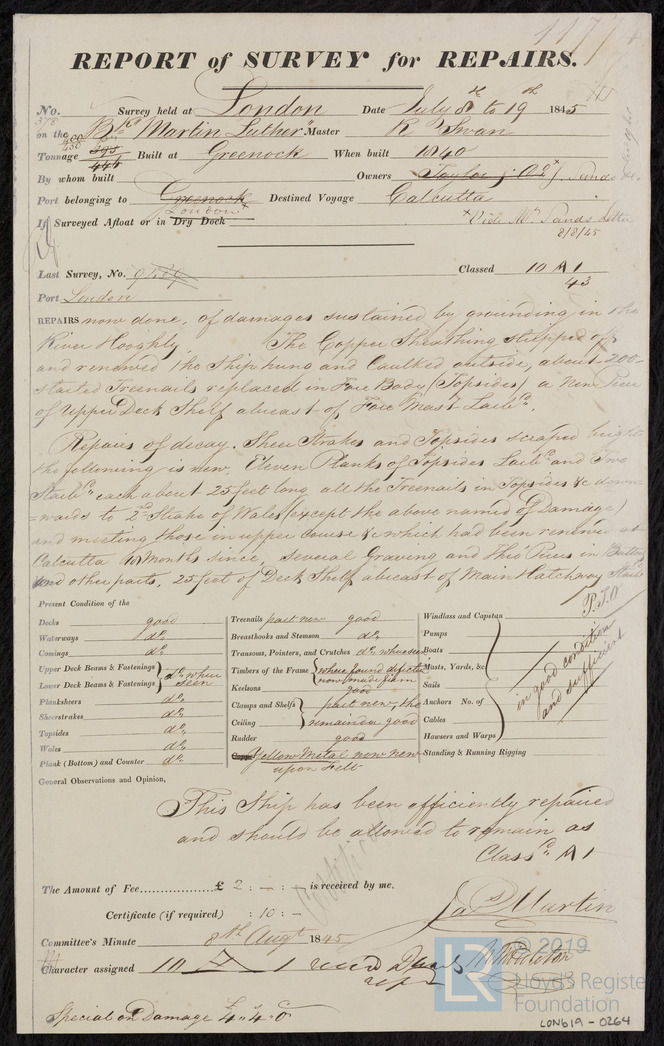 1177
REPORT of SURVEY for REPAIRS.
No. 378 Survey held at London Date July 8th to 19th 1845
on the Bk "Martin Luther" Master R Swan
400 450
Tonnage 395 444 Built at Greenock When built 1840
By whom built Owners Taylor & Co x J. Sands
Port belonging to Greenock x London Destined Voyage Calcutta
If Surveyed Afloat or in Dry Dock x Vide Mr Sands letter 8/8/45
Last Survey, No. Classed 10 A1 43
Port London
REPAIRS now done, of damages sustained by grounding in the
River Hooghly The Copper Sheathing stripped off
and renewed the Ship hung and Caulked outside, about 200
started Treenails replaced in Fore Body (Topsides) a New Piece
of Upper Deck Shelf abreast of Fore Mast Larbd.
Repairs of decay. Sheer Strakes and Topsides scraped bright
the following is new, Eleven Planks of Topsides Larbd and Two
Starbd each about 25 feet long all the Treenails in Topsides &c down
=wards to 2nd Strake of Wales (except the above named of Damage)
and meeting those in upper course &c which had been renewed at
Calcutta Months since, several Graving and Thro' Pieces in Bottom
and other parts, 25 feet of Deck Shelf abreast of Main Hatchway Starbd
P.T.O
Present Condition of the
Decks good
Waterways do.
Comings do.
Upper Deck Beams & Fastenings
Lower Deck Beams & Fastenings } do. where seen
Planksheers do.
Sheerstrakes do.
Topsides do.
Wales do.
Plank (Bottom) and Counter do.
Treenails part new good
Breasthooks and Stemson do.
Transoms, Pointers, and Crutches do. where seen
Timbers of the Frame { where found defective now made firm
Keelsons good
Clamps and Shelfs { part new, the
Ceiling remainder good
Rudder good
Copper Yellow Metal now new
upon Felt
Windlass and Capstan
Pumps
Boats
Masts, Yards, &c
Sails
Anchors No. of
Cables
Hawsers and Warps
Standing & Running Rigging
in good condition
and sufficient
General Observations and Opinion,
This Ship has been efficiently repaired
and should be allowed to remain as
Classd. A1
The Amount of Fee................£ 2 : - : - is received by me.
Certificate (if required) : 10 : -
Jas Martin
Committee's Minute 8th Augt 1845
Character assigned 10 A 1
Special on Damage £4.4.0
© 2019
LR Lloyd's Register
Foundation
LON619-0264